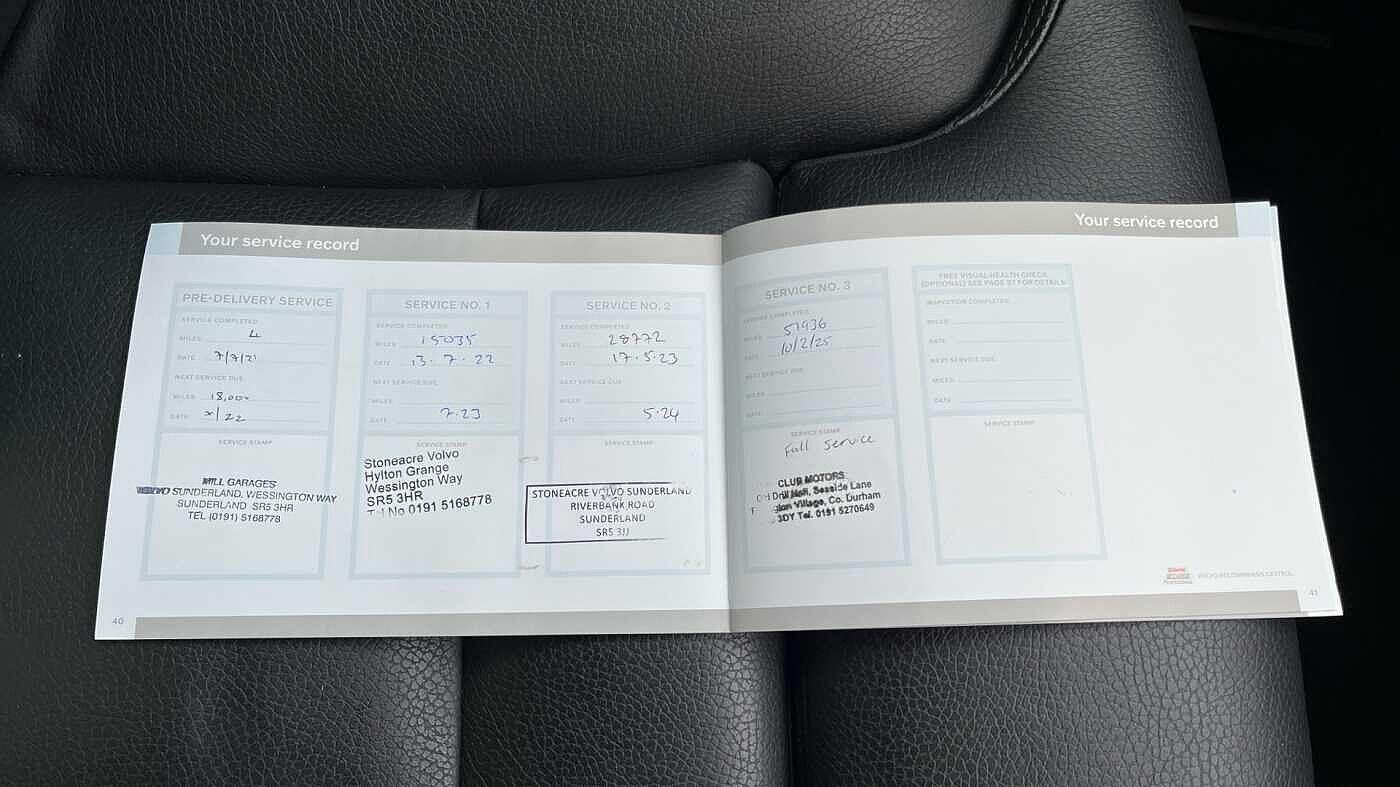 Your service record
PRE-DELIVERY SERVICE
SERVICE COMPLETED
MILES 4
DATE 7/7/21
NEXT SERVICE DUE
MILES 18,000
DATE /22
SERVICE STAMP
MILL GARAGES
VOLVO SUNDERLAND, WESSINGTON WAY
SUNDERLAND SR5 3HR
TEL (0191) 5168778
SERVICE NO. 1
SERVICE COMPLETED
MILES 15035
DATE 13.7.22
NEXT SERVICE DUE
MILES
DATE 7.23
SERVICE STAMP
Stoneacre Volvo
Hylton Grange
Wessington Way
SR5 3HR
Tel No 0191 5168778
SERVICE NO. 2
SERVICE COMPLETED
MILES 28772
DATE 17.5.23
NEXT SERVICE DUE
MILES
DATE 5.24
SERVICE STAMP
STONEACRE VOLVO SUNDERLAND
RIVERBANK ROAD
SUNDERLAND
SR5 3JJ
40
Your service record
SERVICE NO. 3
SERVICE COMPLETED
MILES 51936
DATE 10/2/25
NEXT SERVICE DUE
MILES
DATE
SERVICE STAMP
Full Service
CLUB MOTORS
Drill Hall, Seaside Lane
Village, Co. Durham
3DY Tel. 0191 5270649
FREE VISUAL HEALTH CHECK
(OPTIONAL) SEE PAGE 37 FOR DETAILS
INSPECTION COMPLETED
MILES
DATE
NEXT SERVICE DUE
MILES
DATE
SERVICE STAMP
VOLVO RECOMMENDS CASTROL
41